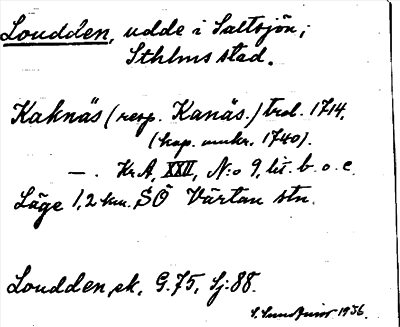 Loudden, udde i Saltsjön;
Sthlms stad.
Kaknäs (resp. Kanäs.) trol. 1714.
(kop. omkr. 1740).
—. Kr.A, XXII, N:o 9, lit. b. o. c.
Läge 1,2 km. SÖ Värtan stn.
Loudden, ek, G. 75, Sj: 88.
1936.